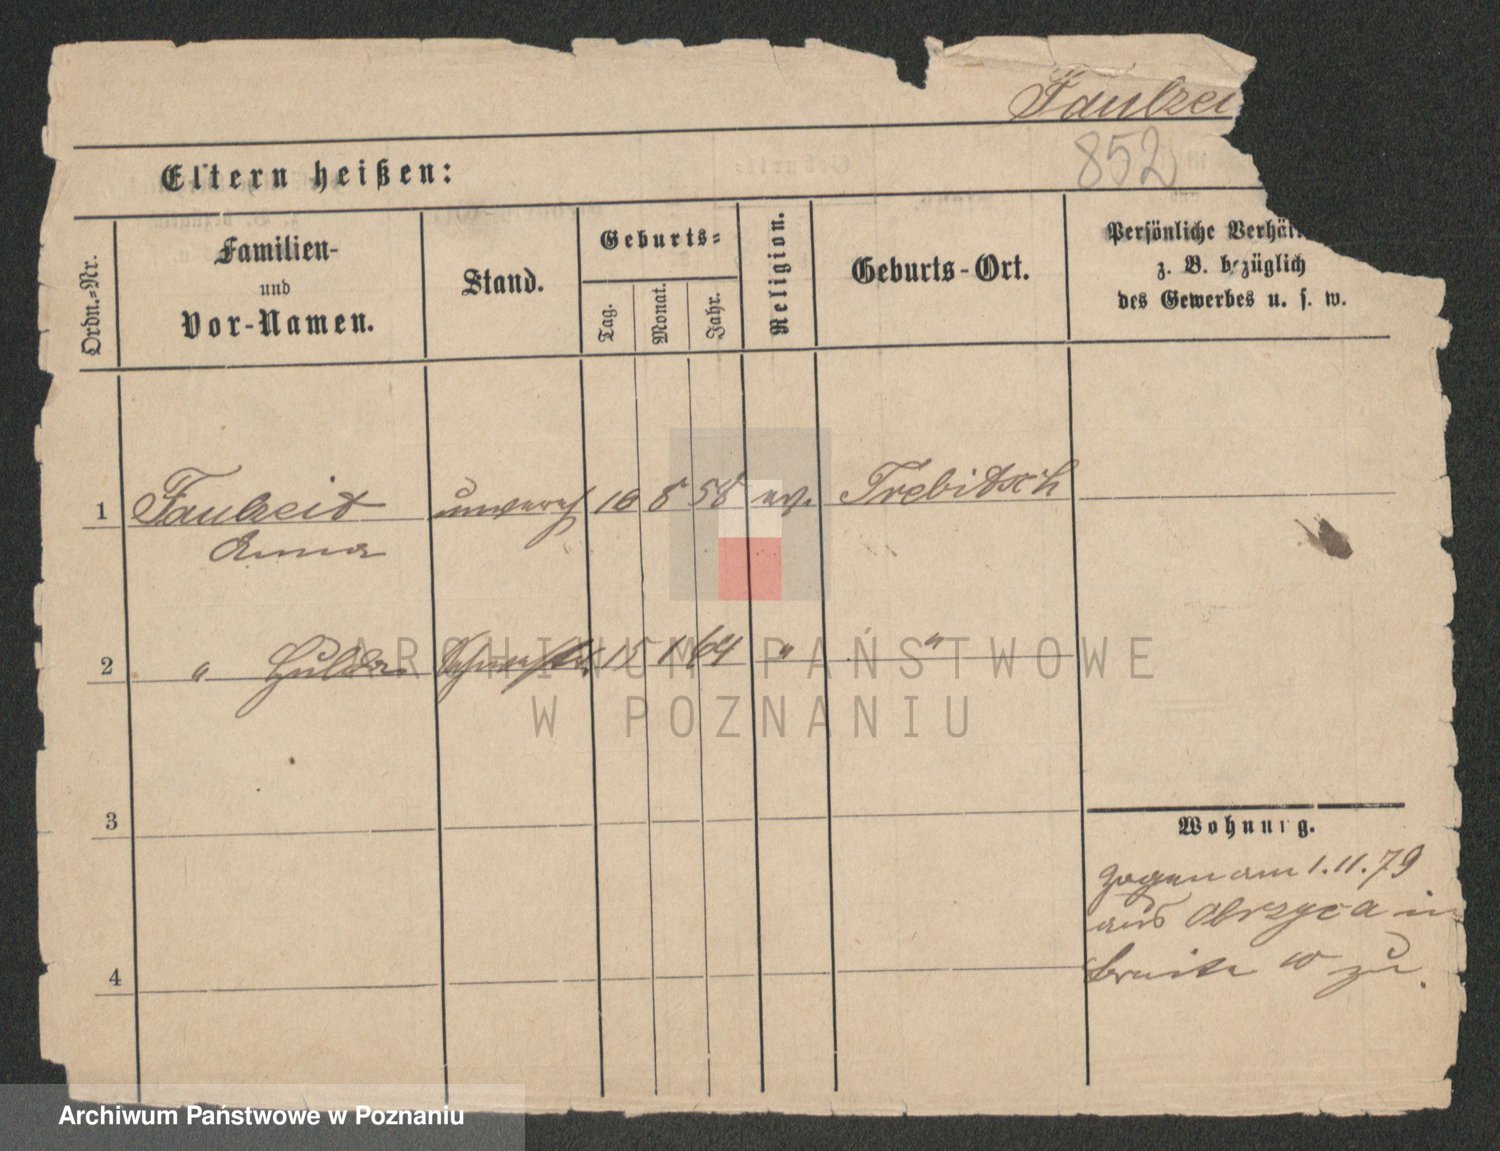 Faulzei
852
Eltern heißen:
Ordn.=Nr.
Familien-
und
Vor-Namen.
Stand.
Geburts=
Tag.
Monat.
Jahr.
Religion.
Geburts-Ort.
Persönliche Verhält
z. B. bezüglich
des Gewerbes u. s. w.
1 Faulzeit unvereh 16 8 58 ev. Trebitsch
Anna
2 " Hulda Schwester 15 1 64 " "
3
4
Wohnung.
Zogen am 1.11.79
aus Obrzyca in
zu
ARCHIWUM PAŃSTWOWE
W POZNANIU
Archiwum Państwowe w Poznaniu